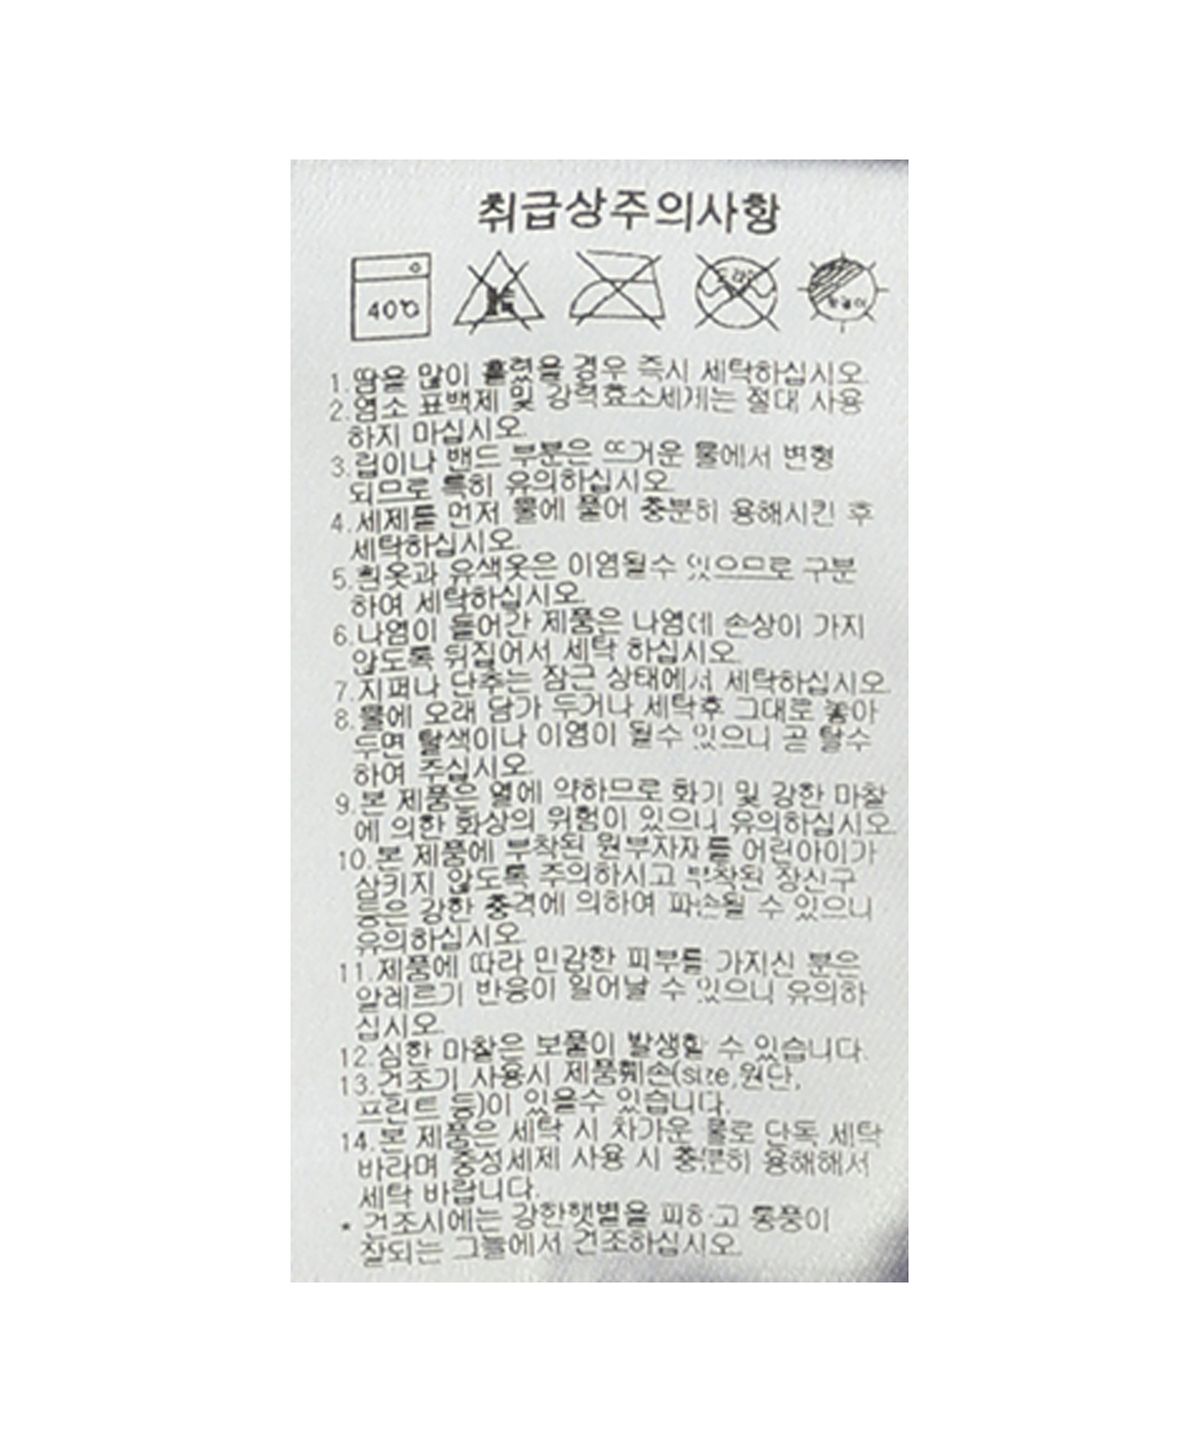 취급상주의사항
40℃
드라이
옷걸이
1.땀을 많이 흘렸을 경우 즉시 세탁하십시오.
2.염소 표백제 및 강력효소세제는 절대 사용
하지 마십시오.
3.립이나 밴드 부분은 뜨거운 물에서 변형
되므로 특히 유의하십시오.
4.세제를 먼저 물에 풀어 충분히 용해시킨 후
세탁하십시오.
5.흰옷과 유색옷은 이염될수 있으므로 구분
하여 세탁하십시오.
6.나염이 들어간 제품은 나염에 손상이 가지
않도록 뒤집어서 세탁 하십시오.
7.지퍼나 단추는 잠근 상태에서 세탁하십시오.
8.물에 오래 담가 두거나 세탁후 그대로 놓아
두면 탈색이나 이염이 될수 있으니 곧 탈수
하여 주십시오.
9.본 제품은 열에 약하므로 화기 및 강한 마찰
에 의한 화상의 위험이 있으니 유의하십시오.
10.본 제품에 부착된 원부자재를 어린아이가
삼키지 않도록 주의하시고 부착된 장신구
등은 강한 충격에 의하여 파손될 수 있으니
유의하십시오.
11.제품에 따라 민감한 피부를 가지신 분은
알레르기 반응이 일어날 수 있으니 유의하
십시오.
12.심한 마찰은 보풀이 발생할 수 있습니다.
13.건조기 사용시 제품훼손(size,원단,
프린트 등)이 있을수 있습니다.
14.본 제품은 세탁 시 차가운 물로 단독 세탁
바라며 중성세제 사용 시 충분히 용해해서
세탁 바랍니다.
* 건조시에는 강한햇볕을 피하고 통풍이
잘되는 그늘에서 건조하십시오.